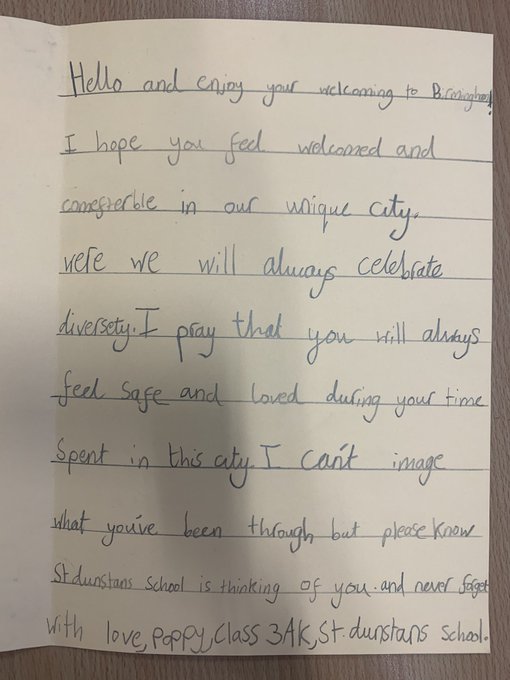 Hello and enjoy your welcoming to Birmingham!
I hope you feel welcomed and
comefterble in our unique city.
Here we will always celebrate
diversety. I pray that you will always
feel safe and loved during your time
Spent in this city. I can't image
what you've been through but please know
St.dunstans school is thinking of you. and never forget
with love, poppy, Class 3AK, St. dunstans school.